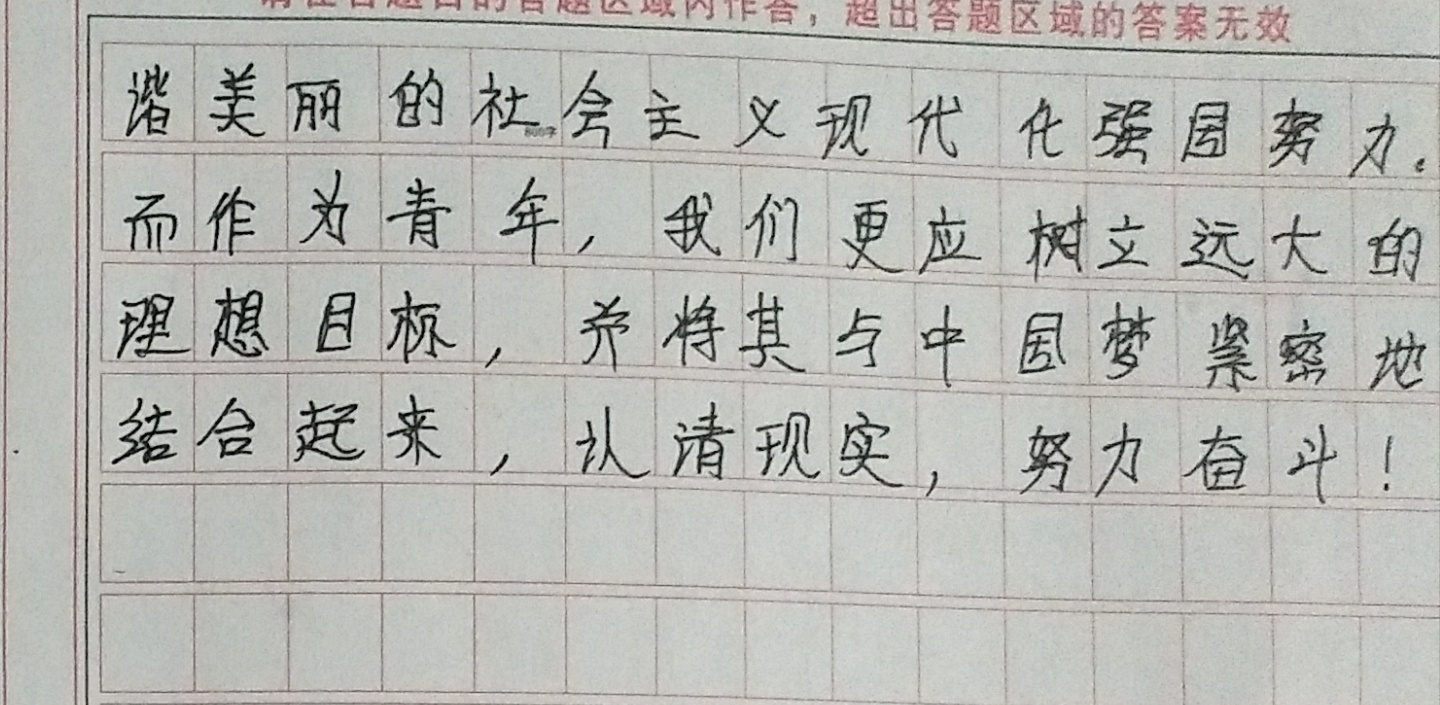 请在各题目的答题区域内作答，超出答题区域的答案无效
谐美丽的社会主义现代化强国努力。
800字
而作为青年，我们更应树立远大的
理想目标，并将其与中国梦紧密地
结合起来，认清现实，努力奋斗！